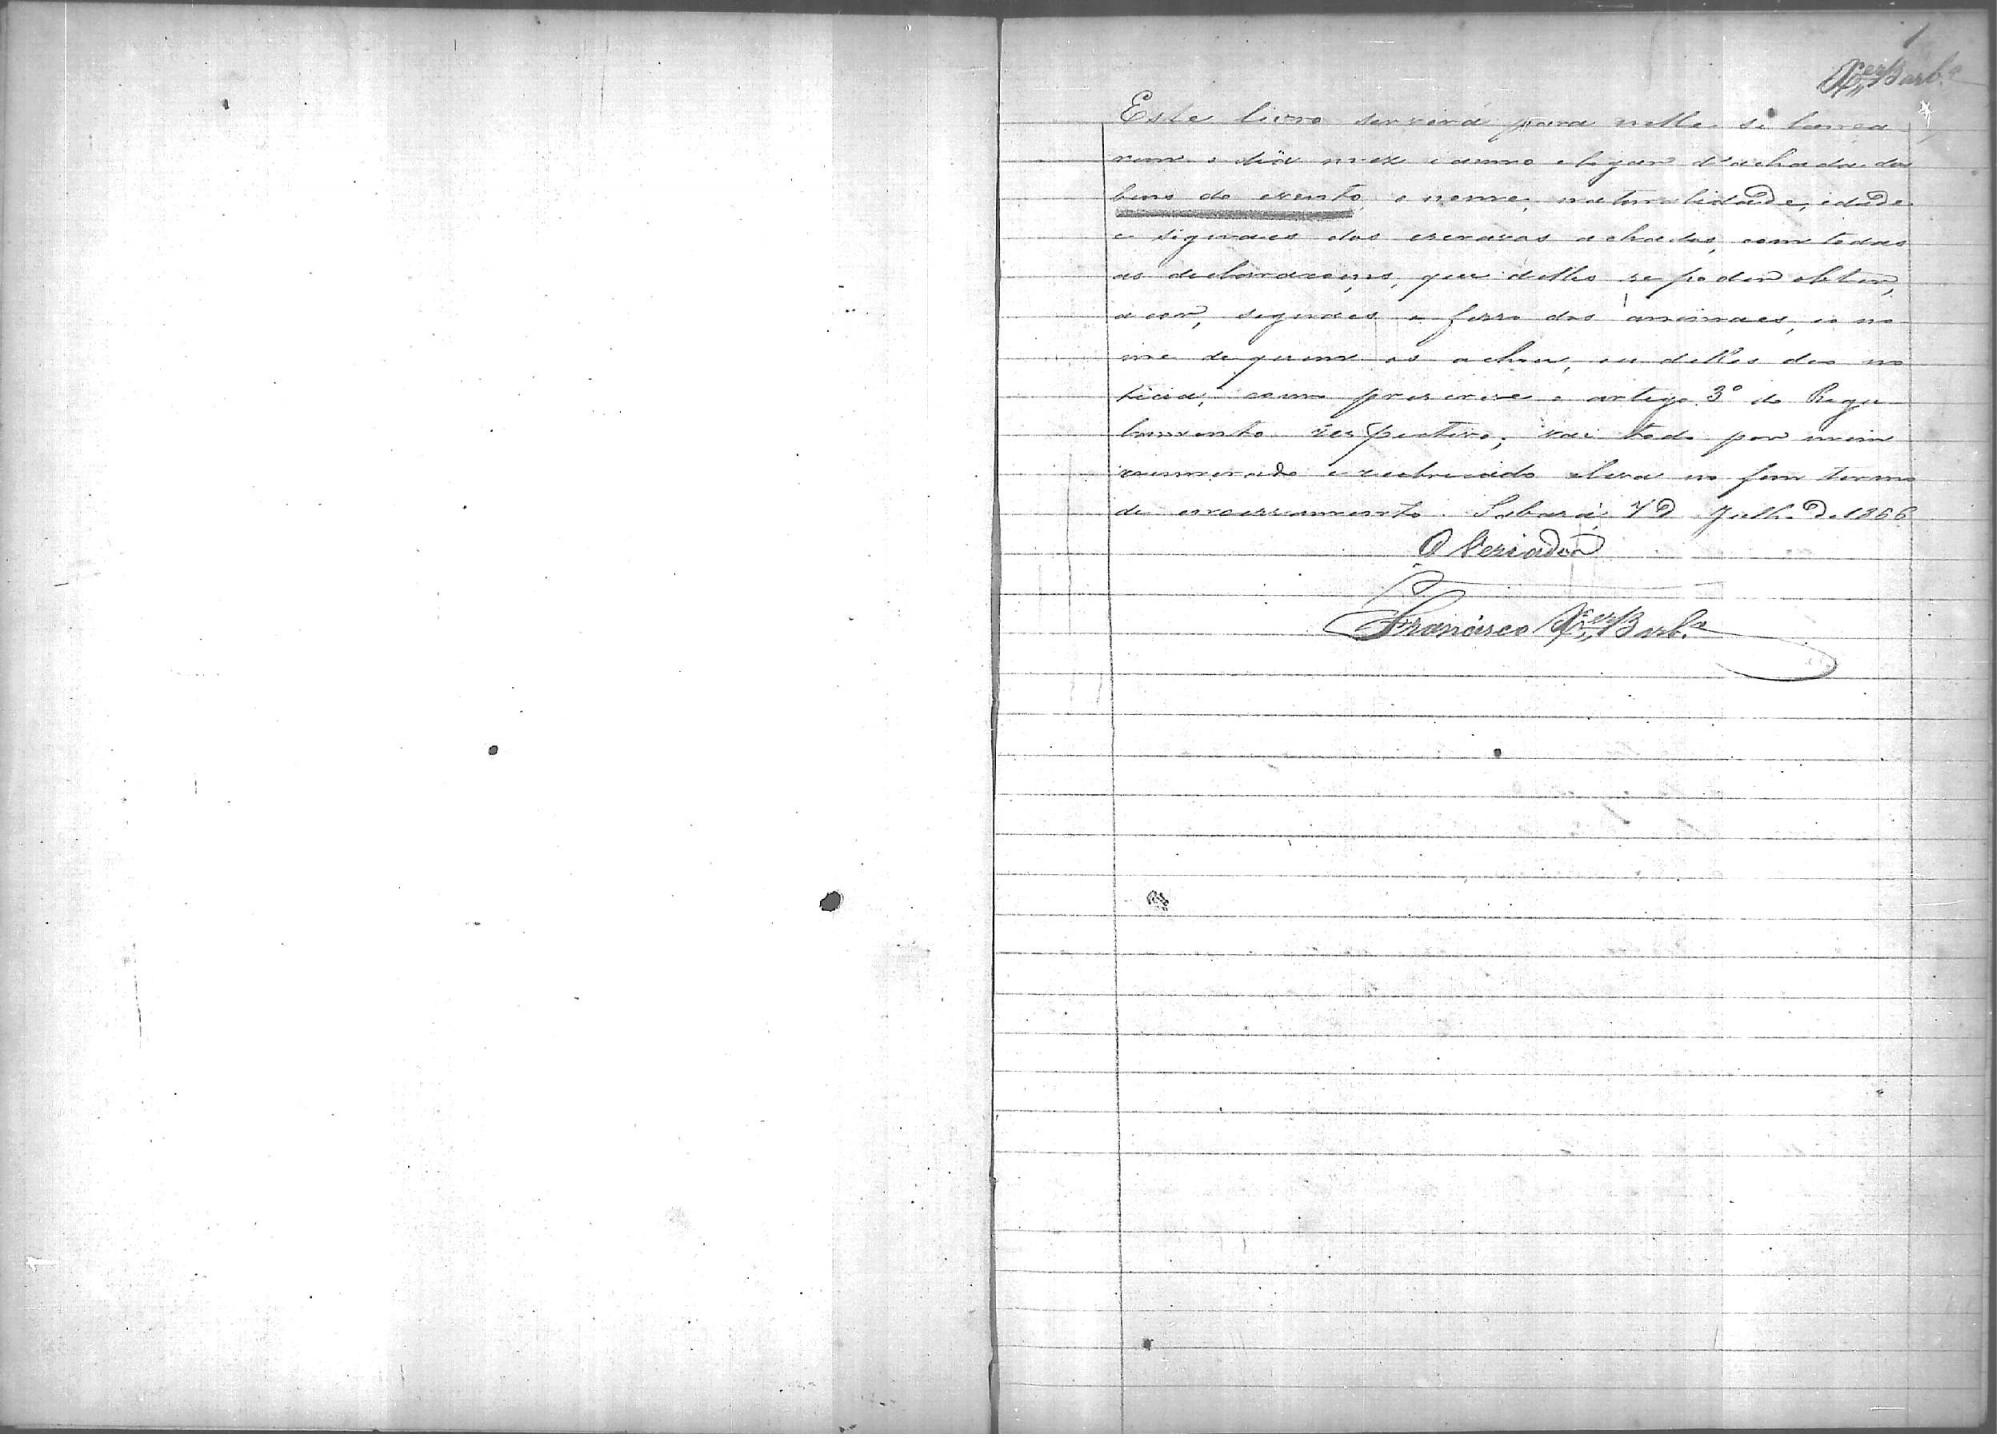 1
X.er Barb.a
Este livro servirá para nelle se lança
rem o dia mez e anno e logar d'achada dos
bens do evento, o nome, naturalidade, idade
e signaes dos escravos achados, com todas
as declaraçoens, que delles se poder obter,
a cor, signaes e ferro dos animaes, e o no
me de quem os achou, ou delles deo no
ticia, como prescreve o artigo 3º do Regu
lamento respectivo, vai todo por mim
numerado e rubricado e leva no fim termo
de encerramento. Sabará, 7 d Julho de 1866
O Veriador
Francisco X.er Barb.a